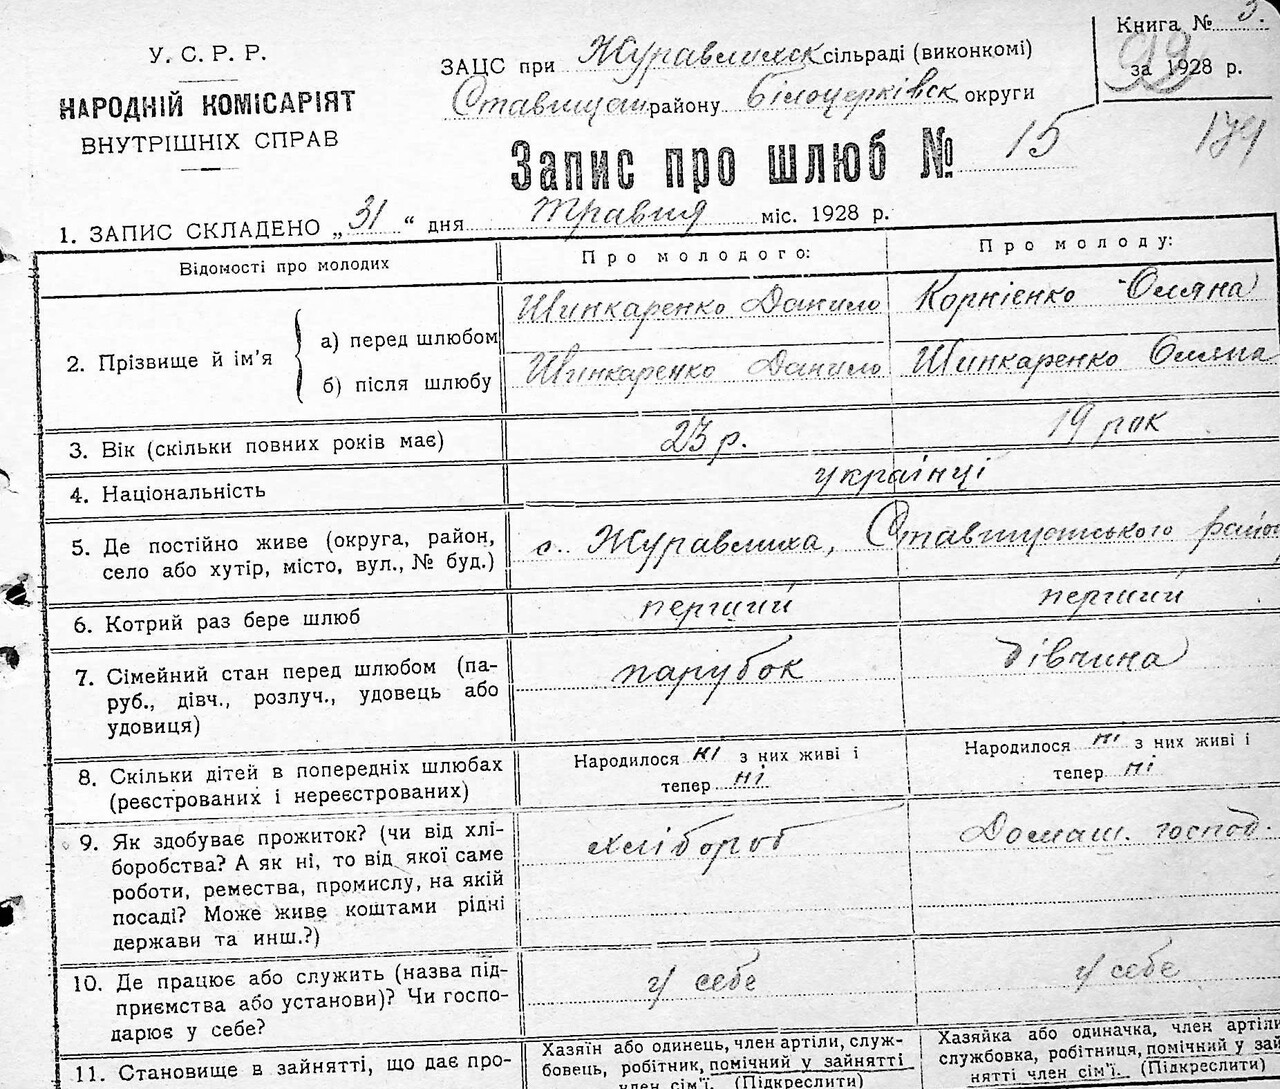 У. С. Р. Р.
НАРОДНІЙ КОМІСАРІЯТ
ВНУТРІШНІХ СПРАВ
ЗАЦС при Журавлихск сільраді (виконкомі)
Ставищан району Білоцерківск округи
Книга № 3.
99
за 1928 р.
179
Запис про шлюб № 15
1. ЗАПИС СКЛАДЕНО „31“ дня травня міс. 1928 р.
Відомості про молодих
Про молодого:
Про молоду:
2. Прізвище й ім'я
а) перед шлюбом
Шинкаренко Данило
Корнієнко Оляна
б) після шлюбу
Шинкаренко Данило
Шинкаренко Оляна
3. Вік (скільки повних років має)
23 р.
19 рок
4. Національність
українці
5. Де постійно живе (округа, район,
село або хутір, місто, вул., № буд.)
с. Журавлиха, Ставищанського район
6. Котрий раз бере шлюб
перший
перший
7. Сімейний стан перед шлюбом (па-
руб., дівч., розлуч., удовець або
удовиця)
парубок
дівчина
8. Скільки дітей в попередніх шлюбах
(реєстрованих і нереєстрованих)
Народилося ні з них живі і
тепер ні
Народилося ні з них живі і
тепер ні
9. Як здобуває прожиток? (чи від хлі-
боробства? А як ні, то від якої саме
роботи, ремества, промислу, на якій
посаді? Може живе коштами рідні
держави та инш.?)
хлібороб
Домаш. господ.
10. Де працює або служить (назва під-
приємства або установи)? Чи госпо-
дарює у себе?
у себе
у себе
11. Становище в зайнятті, що дає про-
Хазяїн або одинець, член артіли, служ-
бовець, робітник, помічний у зайнятті
член сім'ї. (Підкреслити)
Хазяйка або одиначка, член артіли
службовка, робітниця, помічний у зай
нятті член сім'ї. (Підкреслити)